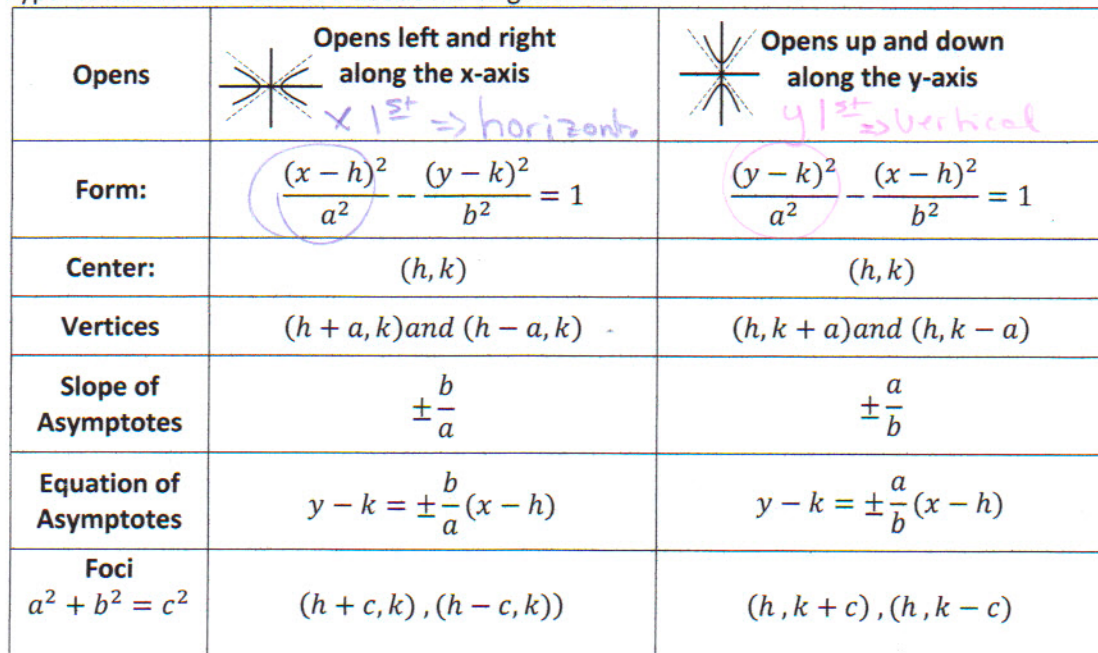 Opens
Opens left and right
along the x-axis
x 1st => horizont.
Opens up and down
along the y-axis
y 1st => vertical
Form:
(x − h)²/a² − (y − k)²/b² = 1
(y − k)²/a² − (x − h)²/b² = 1
Center:
(h, k)
(h, k)
Vertices
(h + a, k)and (h − a, k)
(h, k + a)and (h, k − a)
Slope of
Asymptotes
± b/a
± a/b
Equation of
Asymptotes
y − k = ± b/a (x − h)
y − k = ± a/b (x − h)
Foci
a² + b² = c²
(h + c, k) , (h − c, k))
(h , k + c) , (h , k − c)